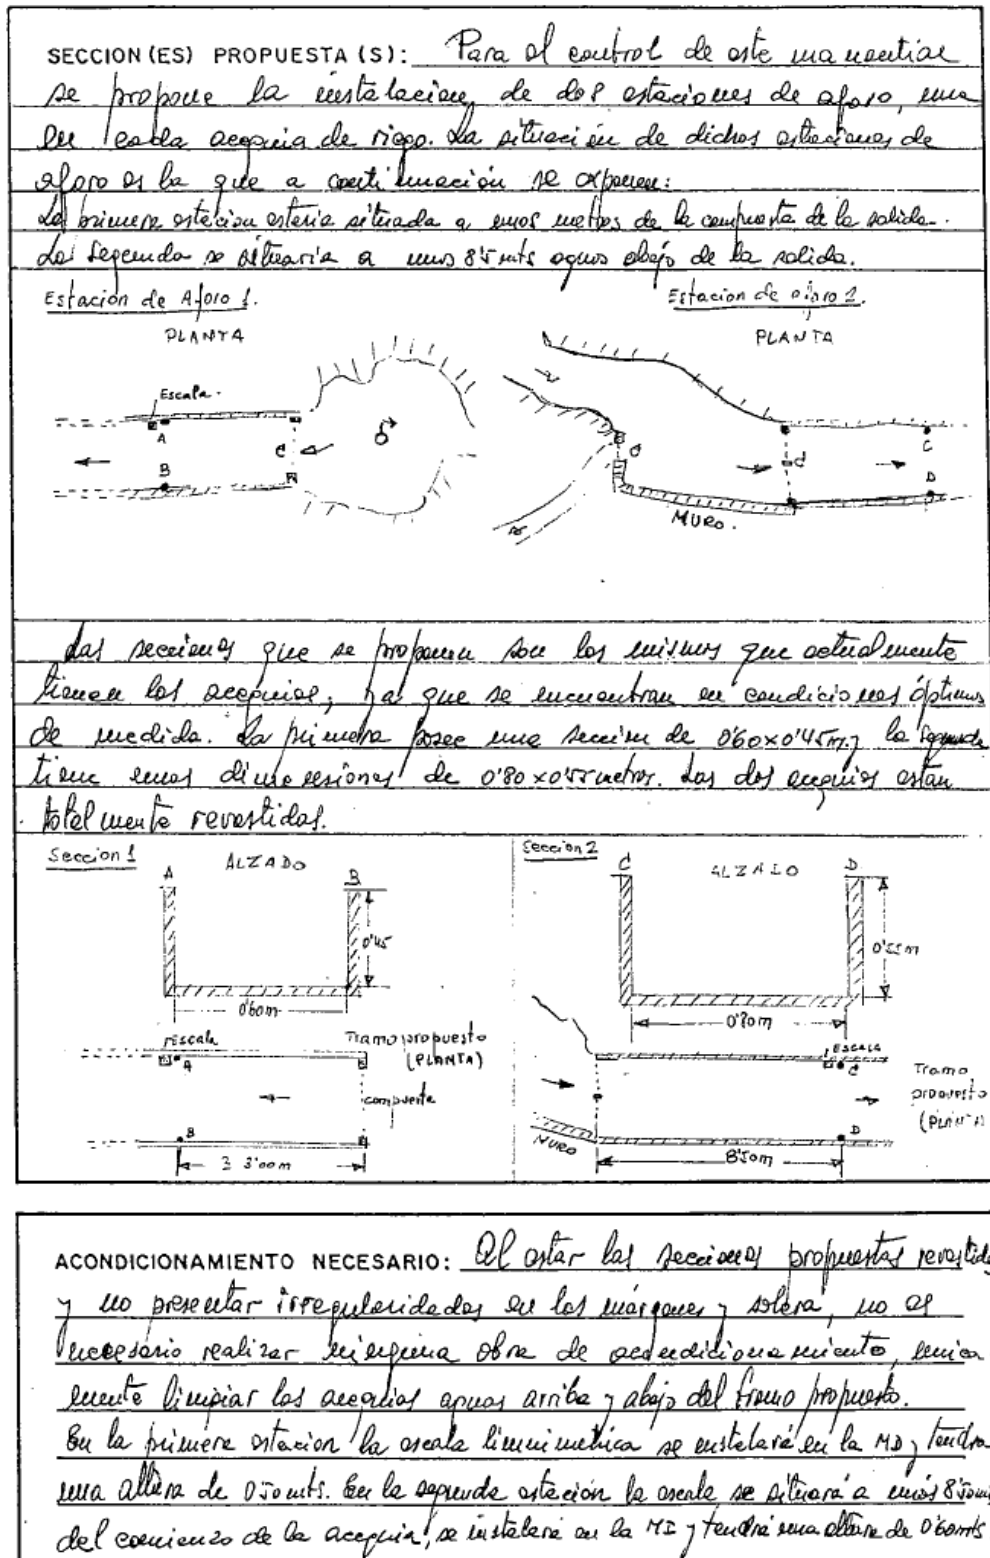 SECCION(ES) PROPUESTA(S): Para el control de este manantial
se propone la instalacion, de dos estaciones de aforo, una
en cada acequia de riego. La situación de dichas estaciones de
aforo es la que a continuación se exponen:
La primera estacion estaria situada a unos metros de la compuerta de la salida.
La segunda se situaria a unos 8'5 mts aguas abajo de la salida.
Estación de Aforo 1.
Estacion de aforo 2.
PLANTA
PLANTA
Escala.
A
B
C
D
MURO.
Las secciones que se proponen son las mismas que actualmente
tienen las acequias, ya que se encuentran en condiciones óptimas
de medida. La primera posee una seccion de 0'60x0'45m. y la segunda
tiene unas dimensiones de 0'80x0'55 metros. Las dos acequias estan
totalmente revestidas.
Seccion 1
ALZADO
A
B
0'45
0'60m
Seccion 2
ALZADO
C
D
0'55m
0'80m
Escala
A
B
Tramo propuesto
(PLANTA)
compuerta
3'00m
ESCALA
C
D
Tramo
propuesto
(PLANTA)
MURO
8'50m
ACONDICIONAMIENTO NECESARIO: Al estar las secciones propuestas revestidas
y no presentar irregularidades en las márgenes y solera, no es
necesario realizar ninguna obra de acondicionamiento, unica
mente limpiar las acequias aguas arriba y abajo del tramo propuesto.
En la primera estacion la escala limnimetrica se instalará en la MD y tendra
una altura de 0'50 mts. En la segunda estación la escala se situará a unos 8'50 mts
del comienzo de la acequia, se instalará en la MI y tendrá una altura de 0'60 mts